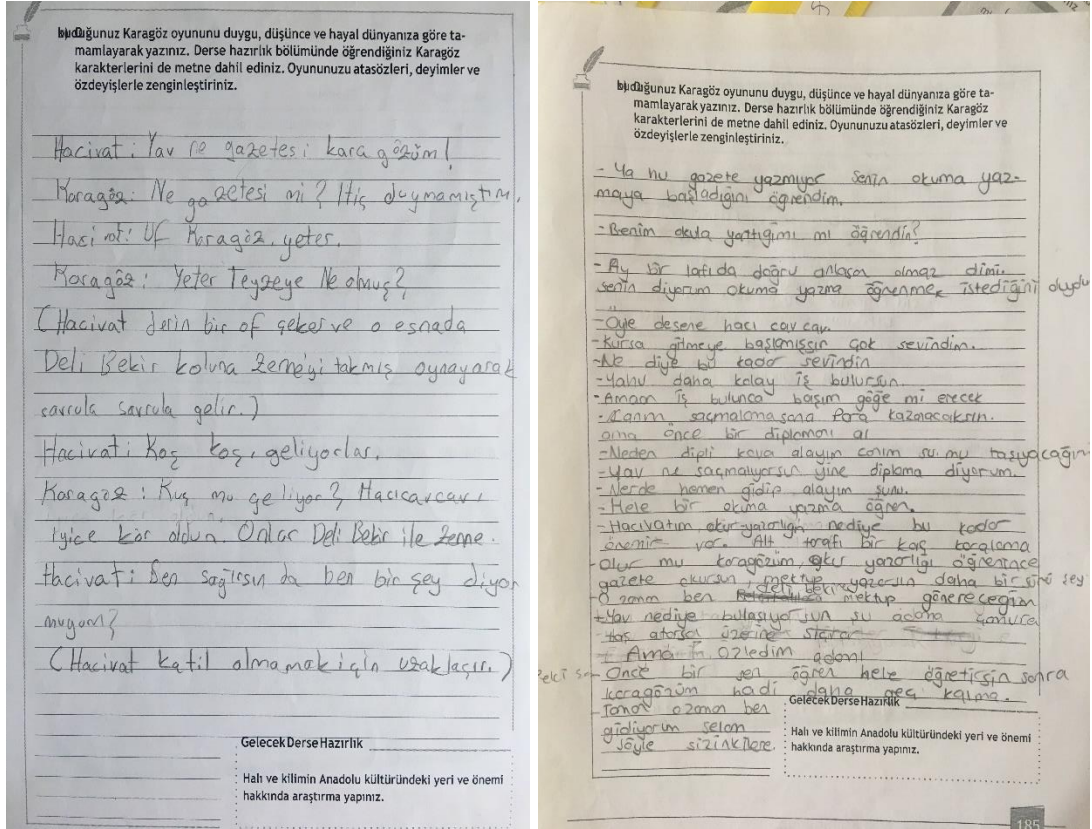 Okuduğunuz Karagöz oyununu duygu, düşünce ve hayal dünyanıza göre ta-
mamlayarak yazınız. Derse hazırlık bölümünde öğrendiğiniz Karagöz
karakterlerini de metne dahil ediniz. Oyununuzu atasözleri, deyimler ve
özdeyişlerle zenginleştiriniz.
Hacivat: Yav ne gazetesi karagözüm!
Karagöz: Ne gazetesi mi? Hiç duymamıştım.
Hacivat: Uf Karagöz, yeter.
Karagöz: Yeter Teyzeye Ne olmuş?
(Hacivat derin bir of çeker ve o esnada
Deli Bekir koluna zenneyi takmış oynayarak
savrula savrula gelir.)
Hacivat: Koş koş, geliyorlar.
Karagöz: Kuş mu geliyor? Hacıcavcav,
iyice kör oldun. Onlar Deli Bekir ile Zenne.
Hacivat: Sen sağırsın da ben bir şey diyor
muyum?
(Hacivat katil olmamak için uzaklaşır.)
Gelecek Derse Hazırlık
Halı ve kilimin Anadolu kültüründeki yeri ve önemi
hakkında araştırma yapınız.
Okuduğunuz Karagöz oyununu duygu, düşünce ve hayal dünyanıza göre ta-
mamlayarak yazınız. Derse hazırlık bölümünde öğrendiğiniz Karagöz
karakterlerini de metne dahil ediniz. Oyununuzu atasözleri, deyimler ve
özdeyişlerle zenginleştiriniz.
- Ya hu gazete yazmıyor senin okuma yaz-
maya başladığını öğrendim.
- Benim okula yaztığımı mı öğrendin?
- Ay bir lafıda doğru anlasan olmaz dimi.
senin diyorum okuma yazma öğrenmek istediğini duydu
- Öyle desene hacı cav cav.
- Kursa gitmeye başlamışsın çok sevindim.
- Ne diye bu kadar sevindin
- Yahu daha kolay iş bulursun.
- Aman iş bulunca başım göğe mi erecek
- Canım saçmalamasana Para kazanacaksın.
ama önce bir diplomanı al
- Neden dipli kova alayım canım su mu taşıyacağım
- Yav ne saçmalıyorsun yine diploma diyorum.
- Nerde hemen gidip alayım şunu.
- Hele bir okuma yazma öğren.
- Hacivatım okur-yazarlığın nediye bu kadar
önemi var. Alt tarafı bir kaç karalama
- Olur mu karagözüm, okur yazarlığı öğrenince
gazete okursun, mektup yazarsın daha bir sürü şey
- O zaman ben deli bekire mektup göndereceğim
- Yav nediye bulaşıyorsun şu adama çamura
taş atarsan üzerine sıçrar
- Ama özledim adamı
Peki - Önce bir sen öğren hele öğretirsin sonra
karagözüm hadi daha geç kalma.
- Tamam o zaman ben
gidiyorum selam
söyle sizinkilere.
Gelecek Derse Hazırlık
Halı ve kilimin Anadolu kültüründeki yeri ve önemi
hakkında araştırma yapınız.
185